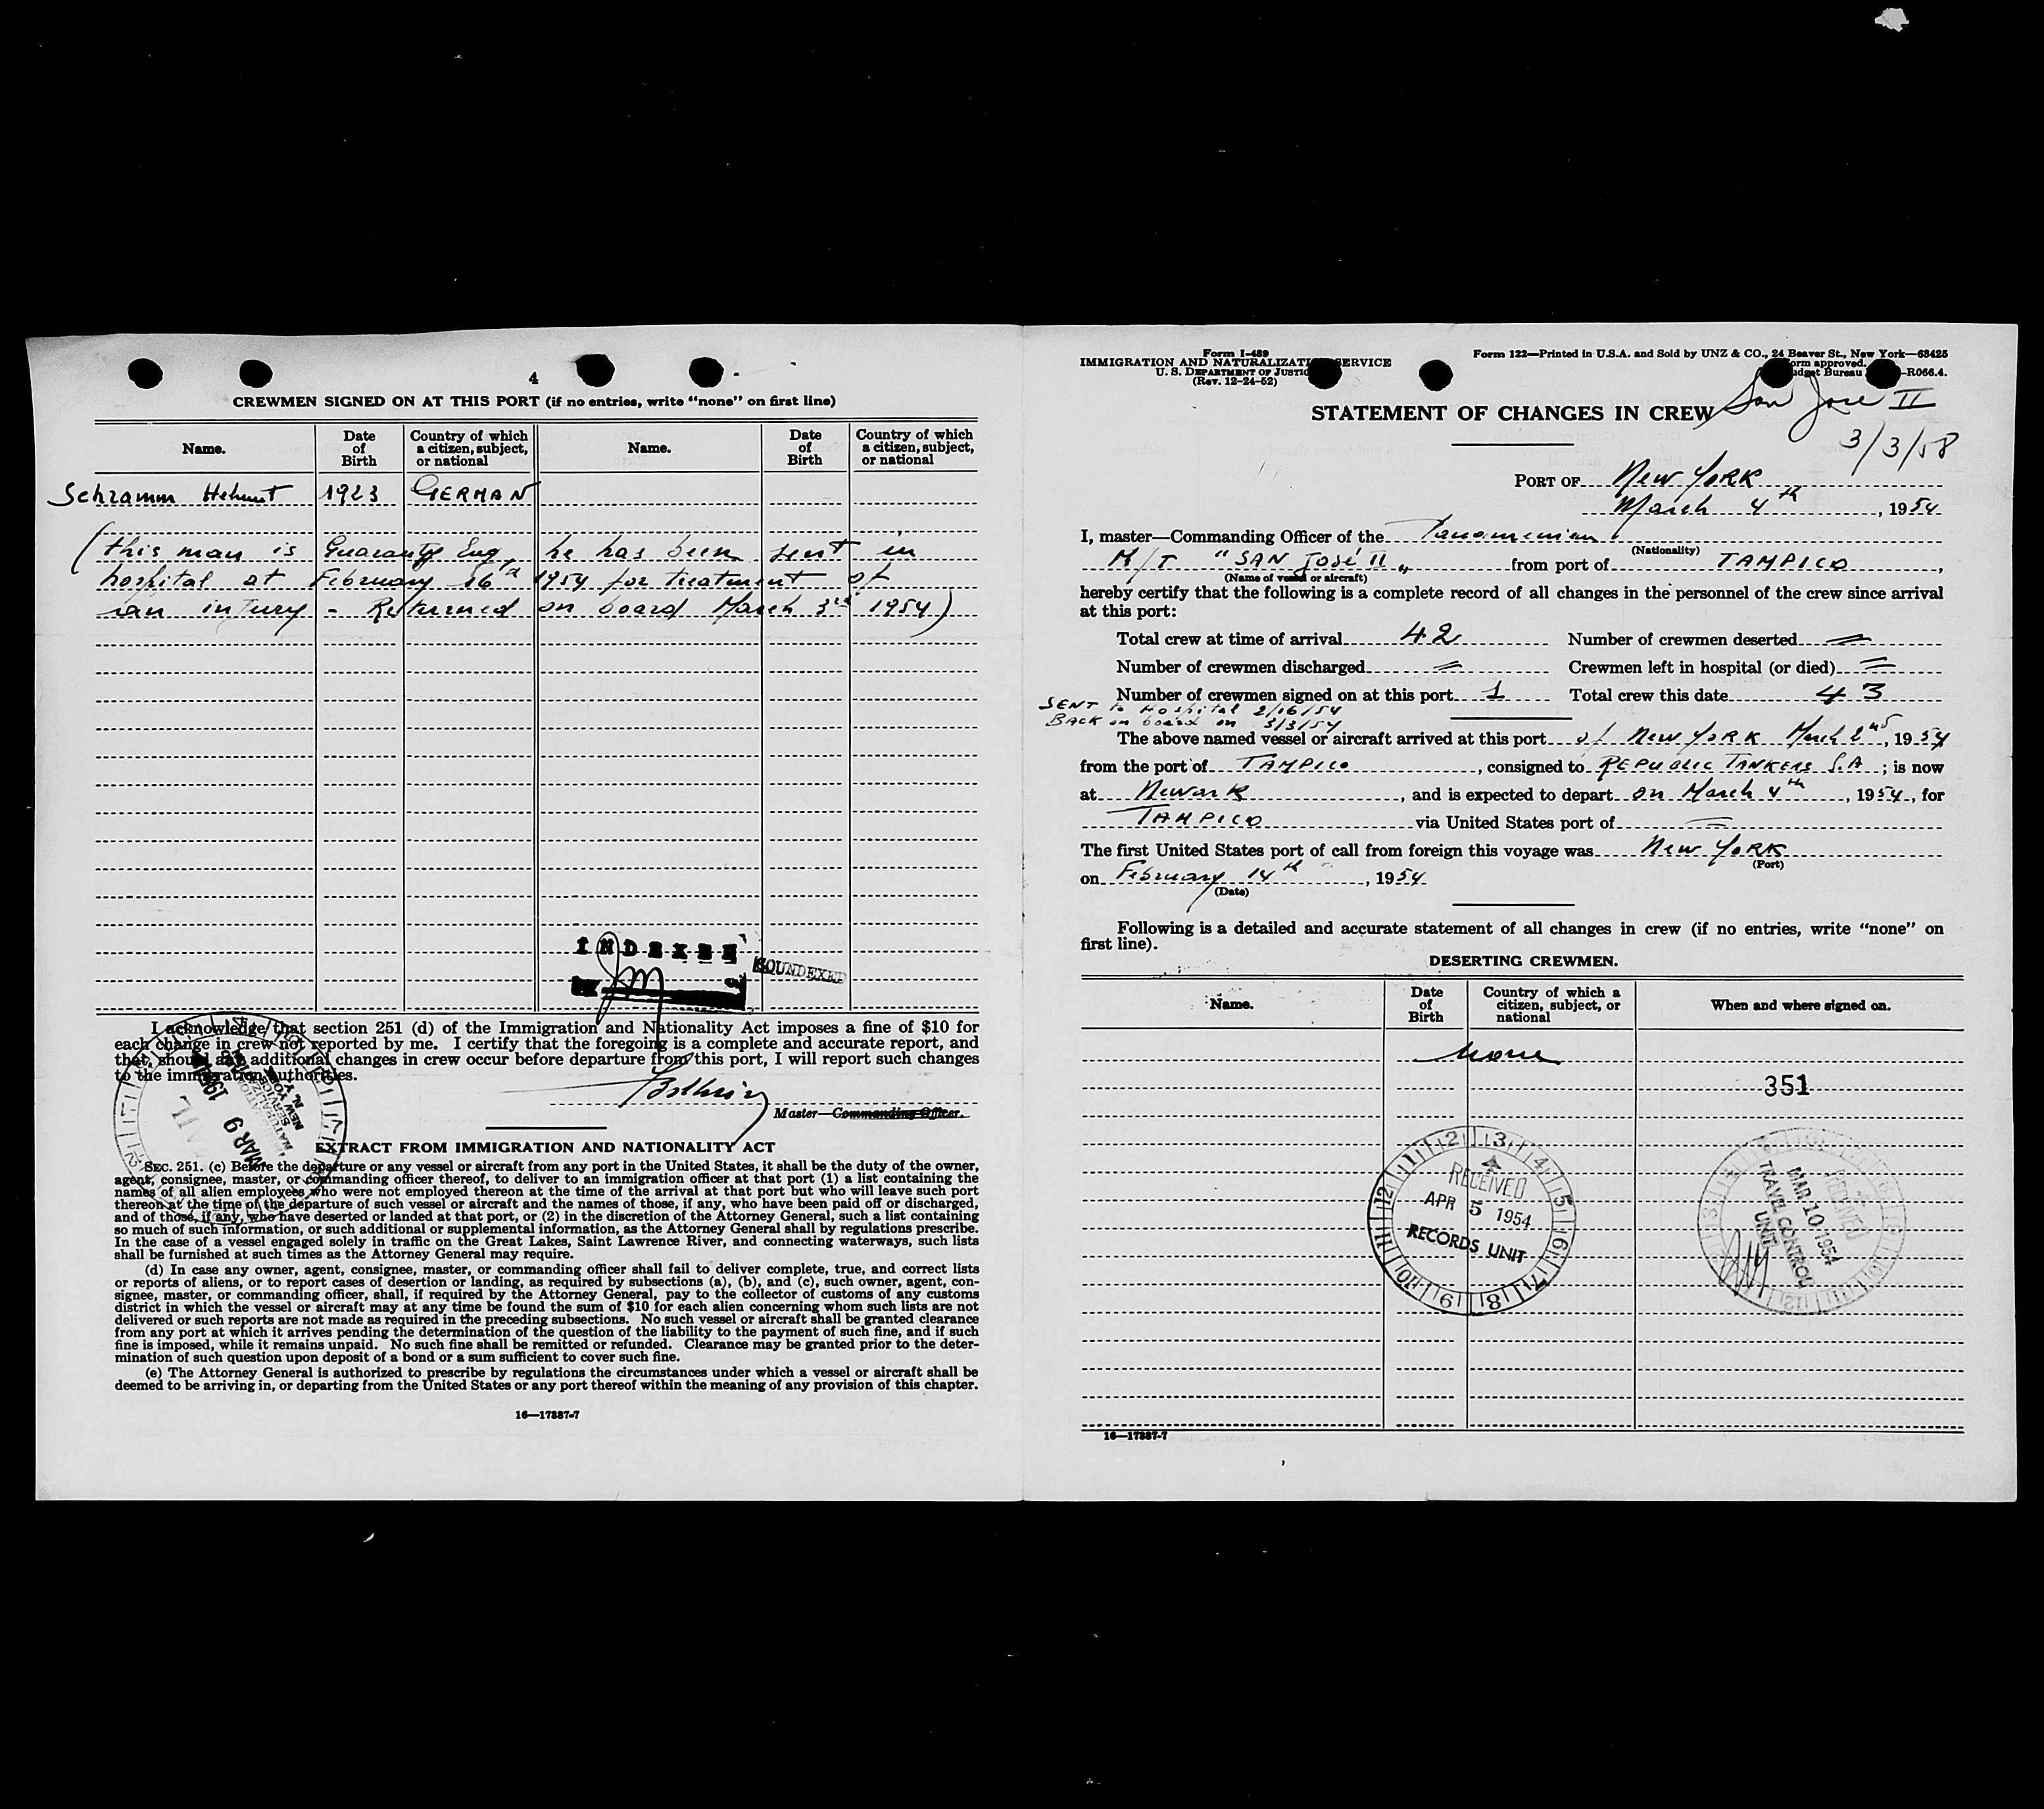 4
CREWMEN SIGNED ON AT THIS PORT (if no entries, write “none” on first line)
Name. Date of Birth Country of which a citizen, subject, or national Name. Date of Birth Country of which a citizen, subject, or national
Schramm Helmut 1923 GERMAN
(this man is Guaranty Eng. he has been sent in
hospital at February 16th 1954 for treatment of
an injury - Returned on board March 3rd 1954)
INDEXED
SOUNDEXED
I acknowledge that section 251 (d) of the Immigration and Nationality Act imposes a fine of $10 for
each change in crew not reported by me. I certify that the foregoing is a complete and accurate report, and
that, should any additional changes in crew occur before departure from this port, I will report such changes
to the immigration authorities.
MAR 9 195
Master—Commanding Officer.
EXTRACT FROM IMMIGRATION AND NATIONALITY ACT
SEC. 251. (c) Before the departure or any vessel or aircraft from any port in the United States, it shall be the duty of the owner,
agent, consignee, master, or commanding officer thereof, to deliver to an immigration officer at that port (1) a list containing the
names of all alien employees who were not employed thereon at the time of the arrival at that port but who will leave such port
thereon at the time of the departure of such vessel or aircraft and the names of those, if any, who have been paid off or discharged,
and of those, if any, who have deserted or landed at that port, or (2) in the discretion of the Attorney General, such a list containing
so much of such information, or such additional or supplemental information, as the Attorney General shall by regulations prescribe.
In the case of a vessel engaged solely in traffic on the Great Lakes, Saint Lawrence River, and connecting waterways, such lists
shall be furnished at such times as the Attorney General may require.
(d) In case any owner, agent, consignee, master, or commanding officer shall fail to deliver complete, true, and correct lists
or reports of aliens, or to report cases of desertion or landing, as required by subsections (a), (b), and (c), such owner, agent, con-
signee, master, or commanding officer, shall, if required by the Attorney General, pay to the collector of customs of any customs
district in which the vessel or aircraft may at any time be found the sum of $10 for each alien concerning whom such lists are not
delivered or such reports are not made as required in the preceding subsections. No such vessel or aircraft shall be granted clearance
from any port at which it arrives pending the determination of the question of the liability to the payment of such fine, and if such
fine is imposed, while it remains unpaid. No such fine shall be remitted or refunded. Clearance may be granted prior to the deter-
mination of such question upon deposit of a bond or a sum sufficient to cover such fine.
(e) The Attorney General is authorized to prescribe by regulations the circumstances under which a vessel or aircraft shall be
deemed to be arriving in, or departing from the United States or any port thereof within the meaning of any provision of this chapter.
16—17887-7
Form I-489
IMMIGRATION AND NATURALIZATION SERVICE
U. S. DEPARTMENT OF JUSTICE
(Rev. 12-24-52)
Form 122—Printed in U.S.A. and Sold by UNZ & CO., 24 Beaver St., New York—68425
Form approved.
Budget Bureau -R066.4.
STATEMENT OF CHANGES IN CREW San Jose II
3/3/58
PORT OF New YORK
March 4th, 1954
I, master—Commanding Officer of the Panamenian
(Nationality)
M/T “SAN José II„ from port of TAMPICO,
(Name of vessel or aircraft)
hereby certify that the following is a complete record of all changes in the personnel of the crew since arrival
at this port:
Total crew at time of arrival 42 Number of crewmen deserted =
Number of crewmen discharged = Crewmen left in hospital (or died) =
Number of crewmen signed on at this port 1 Total crew this date 43
SENT to Hospital 2/16/54
BACK on board on 3/3/54
The above named vessel or aircraft arrived at this port of New YORK March 2nd, 1954
from the port of TAMPICO, consigned to REPUBLIC TANKERS S.A; is now
at Newark, and is expected to depart on March 4th, 1954, for
TAMPICO via United States port of —
The first United States port of call from foreign this voyage was New YORK
(Port)
on February 14th, 1954
(Date)
Following is a detailed and accurate statement of all changes in crew (if no entries, write “none” on
first line).
DESERTING CREWMEN.
Name. Date of Birth Country of which a citizen, subject, or national When and where signed on.
None
351
RECEIVED
APR 5 1954
RECORDS UNIT
RECEIVED
MAR 10 1954
TRAVEL CONTROL
UNIT
16—17887-7